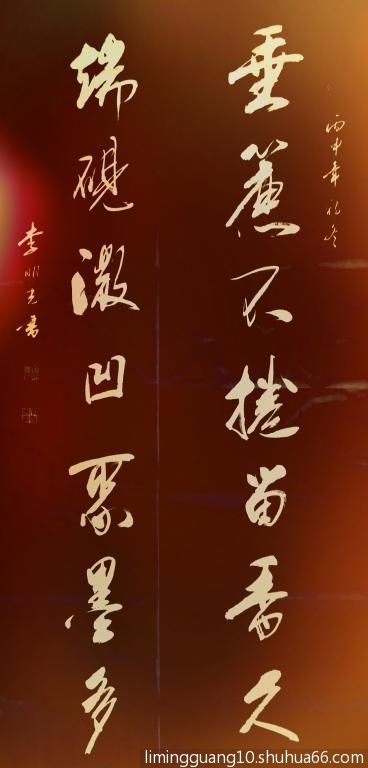 丙申年初冬
垂簾不捲留香久
端硯微凹聚墨多
李明光書
limingguang10.shuhua66.com